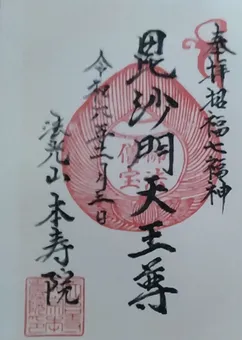 奉拝招福七福神
毘沙門天王尊
令和六年二月三日
法光山本寿院